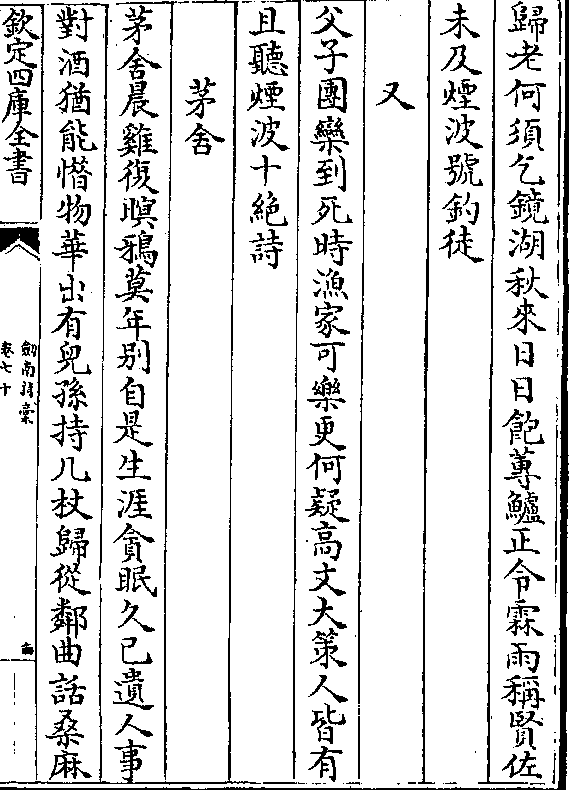 歸老何須乞鏡湖秋來日日飽蓴鱸正令霖雨稱賢佐
未及煙波號釣徒
又
父子團欒到死時漁家可樂更何疑高文大策人皆有
且聽煙波十絶詩
茅舍
茅舍晨雞復暝鴉莫年别自是生涯貪眠久已遺人事
對酒猶能惜物華出有兒孫持几杖歸從鄰曲話桑麻
欽定四庫全書
劍南詩藁
卷七十